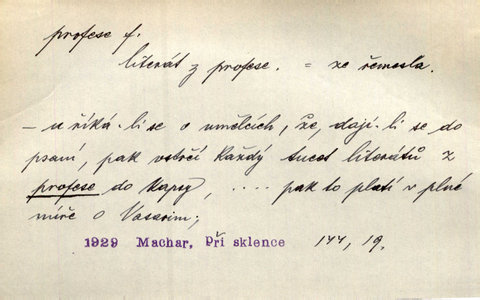 profese f.
literát z profese. = ze řemesla.
– u říká-li se o umělcích, že, dají-li se do
psaní, pak vstrčí každý tucet literátů z
profese do kapsy, .... pak to platí v plné
míře o Vasarim;
1929 Machar, Při sklence 144, 19.